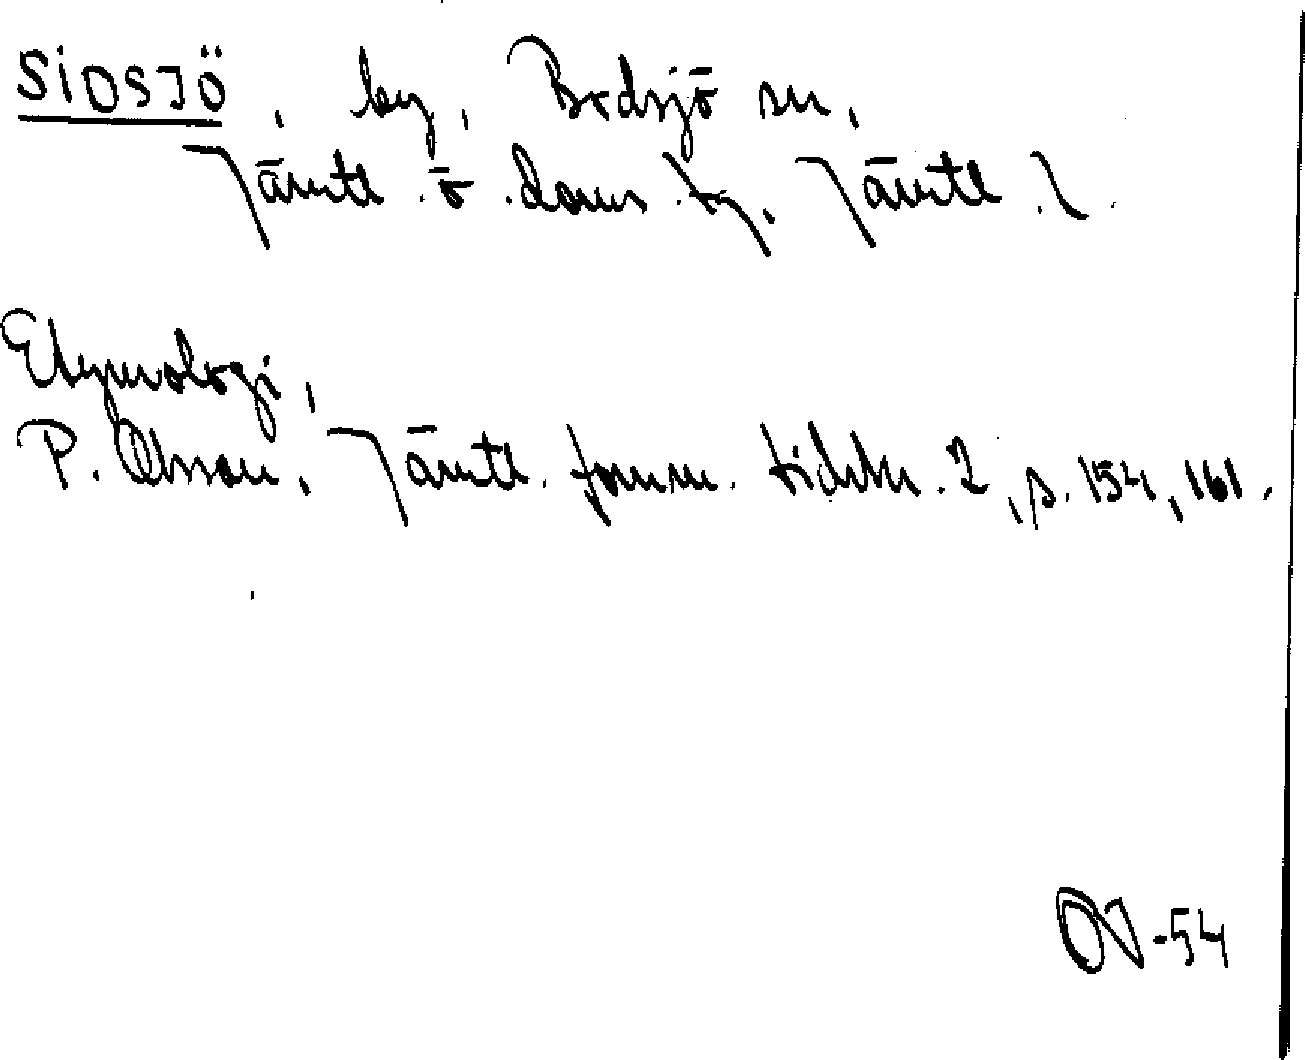 SIDSJÖ, by, Bodsjö sn,
Jämtl. ö. doms. tg. Jämtl. l.
Etymologi,
P. Olsson, Jämtl. fornm. tidskr. 2, s. 154, 161.
-54